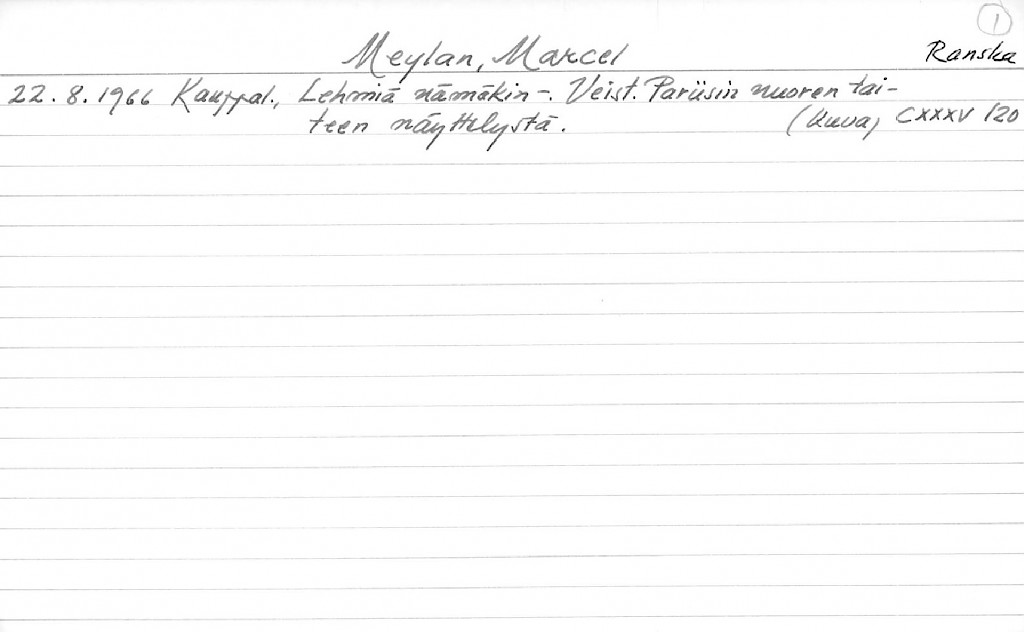 1
Meylan, Marcel Ranska
22.8.1966 Kauppal., Lehmiä nämäkin -. Veist. Pariisin nuoren tai-
teen näyttelystä. (kuva) CXXXV /20